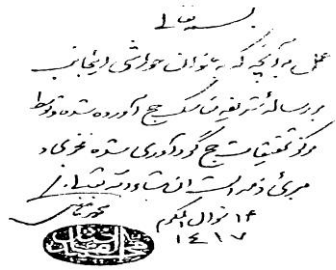 بسمه تعالی
عمل به آنچه که به عنوان حواشی اینجانب
بر رساله شریفه مناسک حج آورده شده و توسط
مرکز تحقیقات حج گردآوری شده مجزی و
مبرئ ذمه است ان شاء الله تعالی
۱۴ شوال المکرم
۱۴۱۷